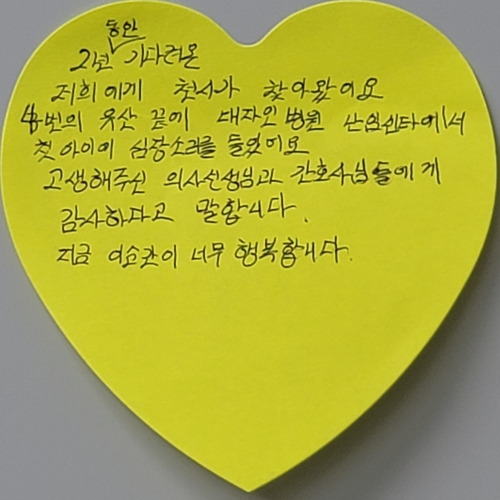 2년 동안 기다려온
저희에게 천사가 찾아왔어요
4번의 유산 끝에 대자인병원 난임센타에서
첫 아이에 심장소리를 들었어요
고생해주신 의사선생님과 간호사님들에게
감사하다고 말합니다.
지금 이순간이 너무 행복합니다.